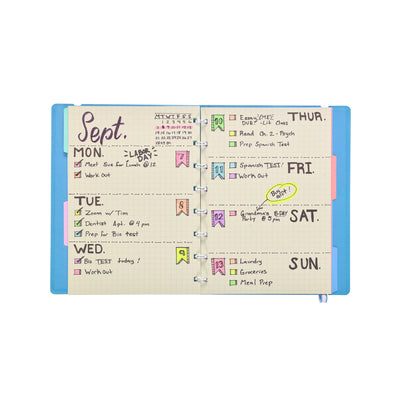 Sept.
M T W T F S S
MON.
LABOR DAY
7
Meet Sue for Lunch @ 12
Work Out
TUE.
8
Zoom w/ Tim
Dentist Apt. @ 4 pm
Prep for Bio test
WED.
9
Bio TEST today!
Work Out
THUR.
10
Essay DUE - Lit Class
Read Ch. 2 - Psych
Prep Spanish Test
FRI.
11
Spanish TEST!
Work Out
SAT.
12
Buy Gift!
Grandma's B.DAY
Party @ 3 pm
SUN.
13
Laundry
Groceries
Meal Prep